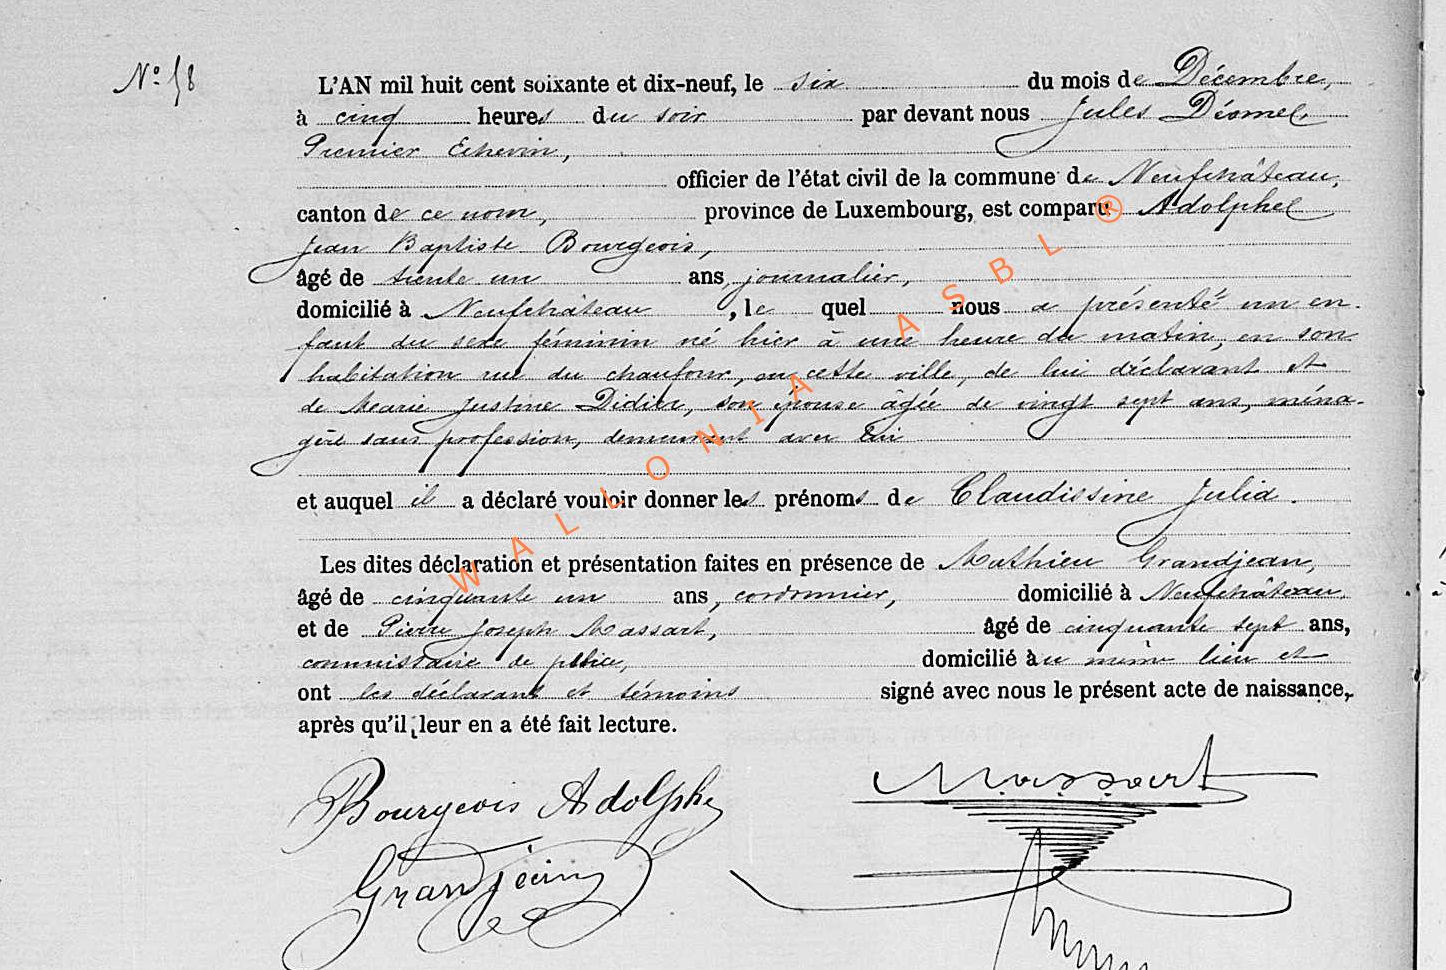 N° 58
L'AN mil huit cent soixante et dix-neuf, le six du mois de Décembre,
à cinq heures du soir par devant nous Jules
Premier Echevin,
officier de l'état civil de la commune de Neufchâteau,
canton de ce nom, province de Luxembourg, est comparu Adolphe
Jean Baptiste Bourgeois,
âgé de trente un ans, journalier,
domicilié à Neufchâteau, le quel nous a présenté un en-
fant du sexe féminin né hier à une heure du matin, en son
habitation rue du chaufour, en cette ville, de lui déclarant et
de Marie Justine Didier, son épouse âgée de vingt sept ans, ména-
gère sans profession, demeurant avec lui
et auquel il a déclaré vouloir donner les prénoms de Claudissine Julia.
Les dites déclaration et présentation faites en présence de Mathieu Grandjean,
âgé de cinquante un ans, cordonnier, domicilié à Neufchâteau,
et de Pierre Joseph Massart, âgé de cinquante sept ans,
commissaire de police, domicilié au même lieu et
ont les déclarant et témoins signé avec nous le présent acte de naissance,
après qu'il leur en a été fait lecture.
Bourgeois Adolphe
Massart
Grandjean
WALLONIA ASBL ®